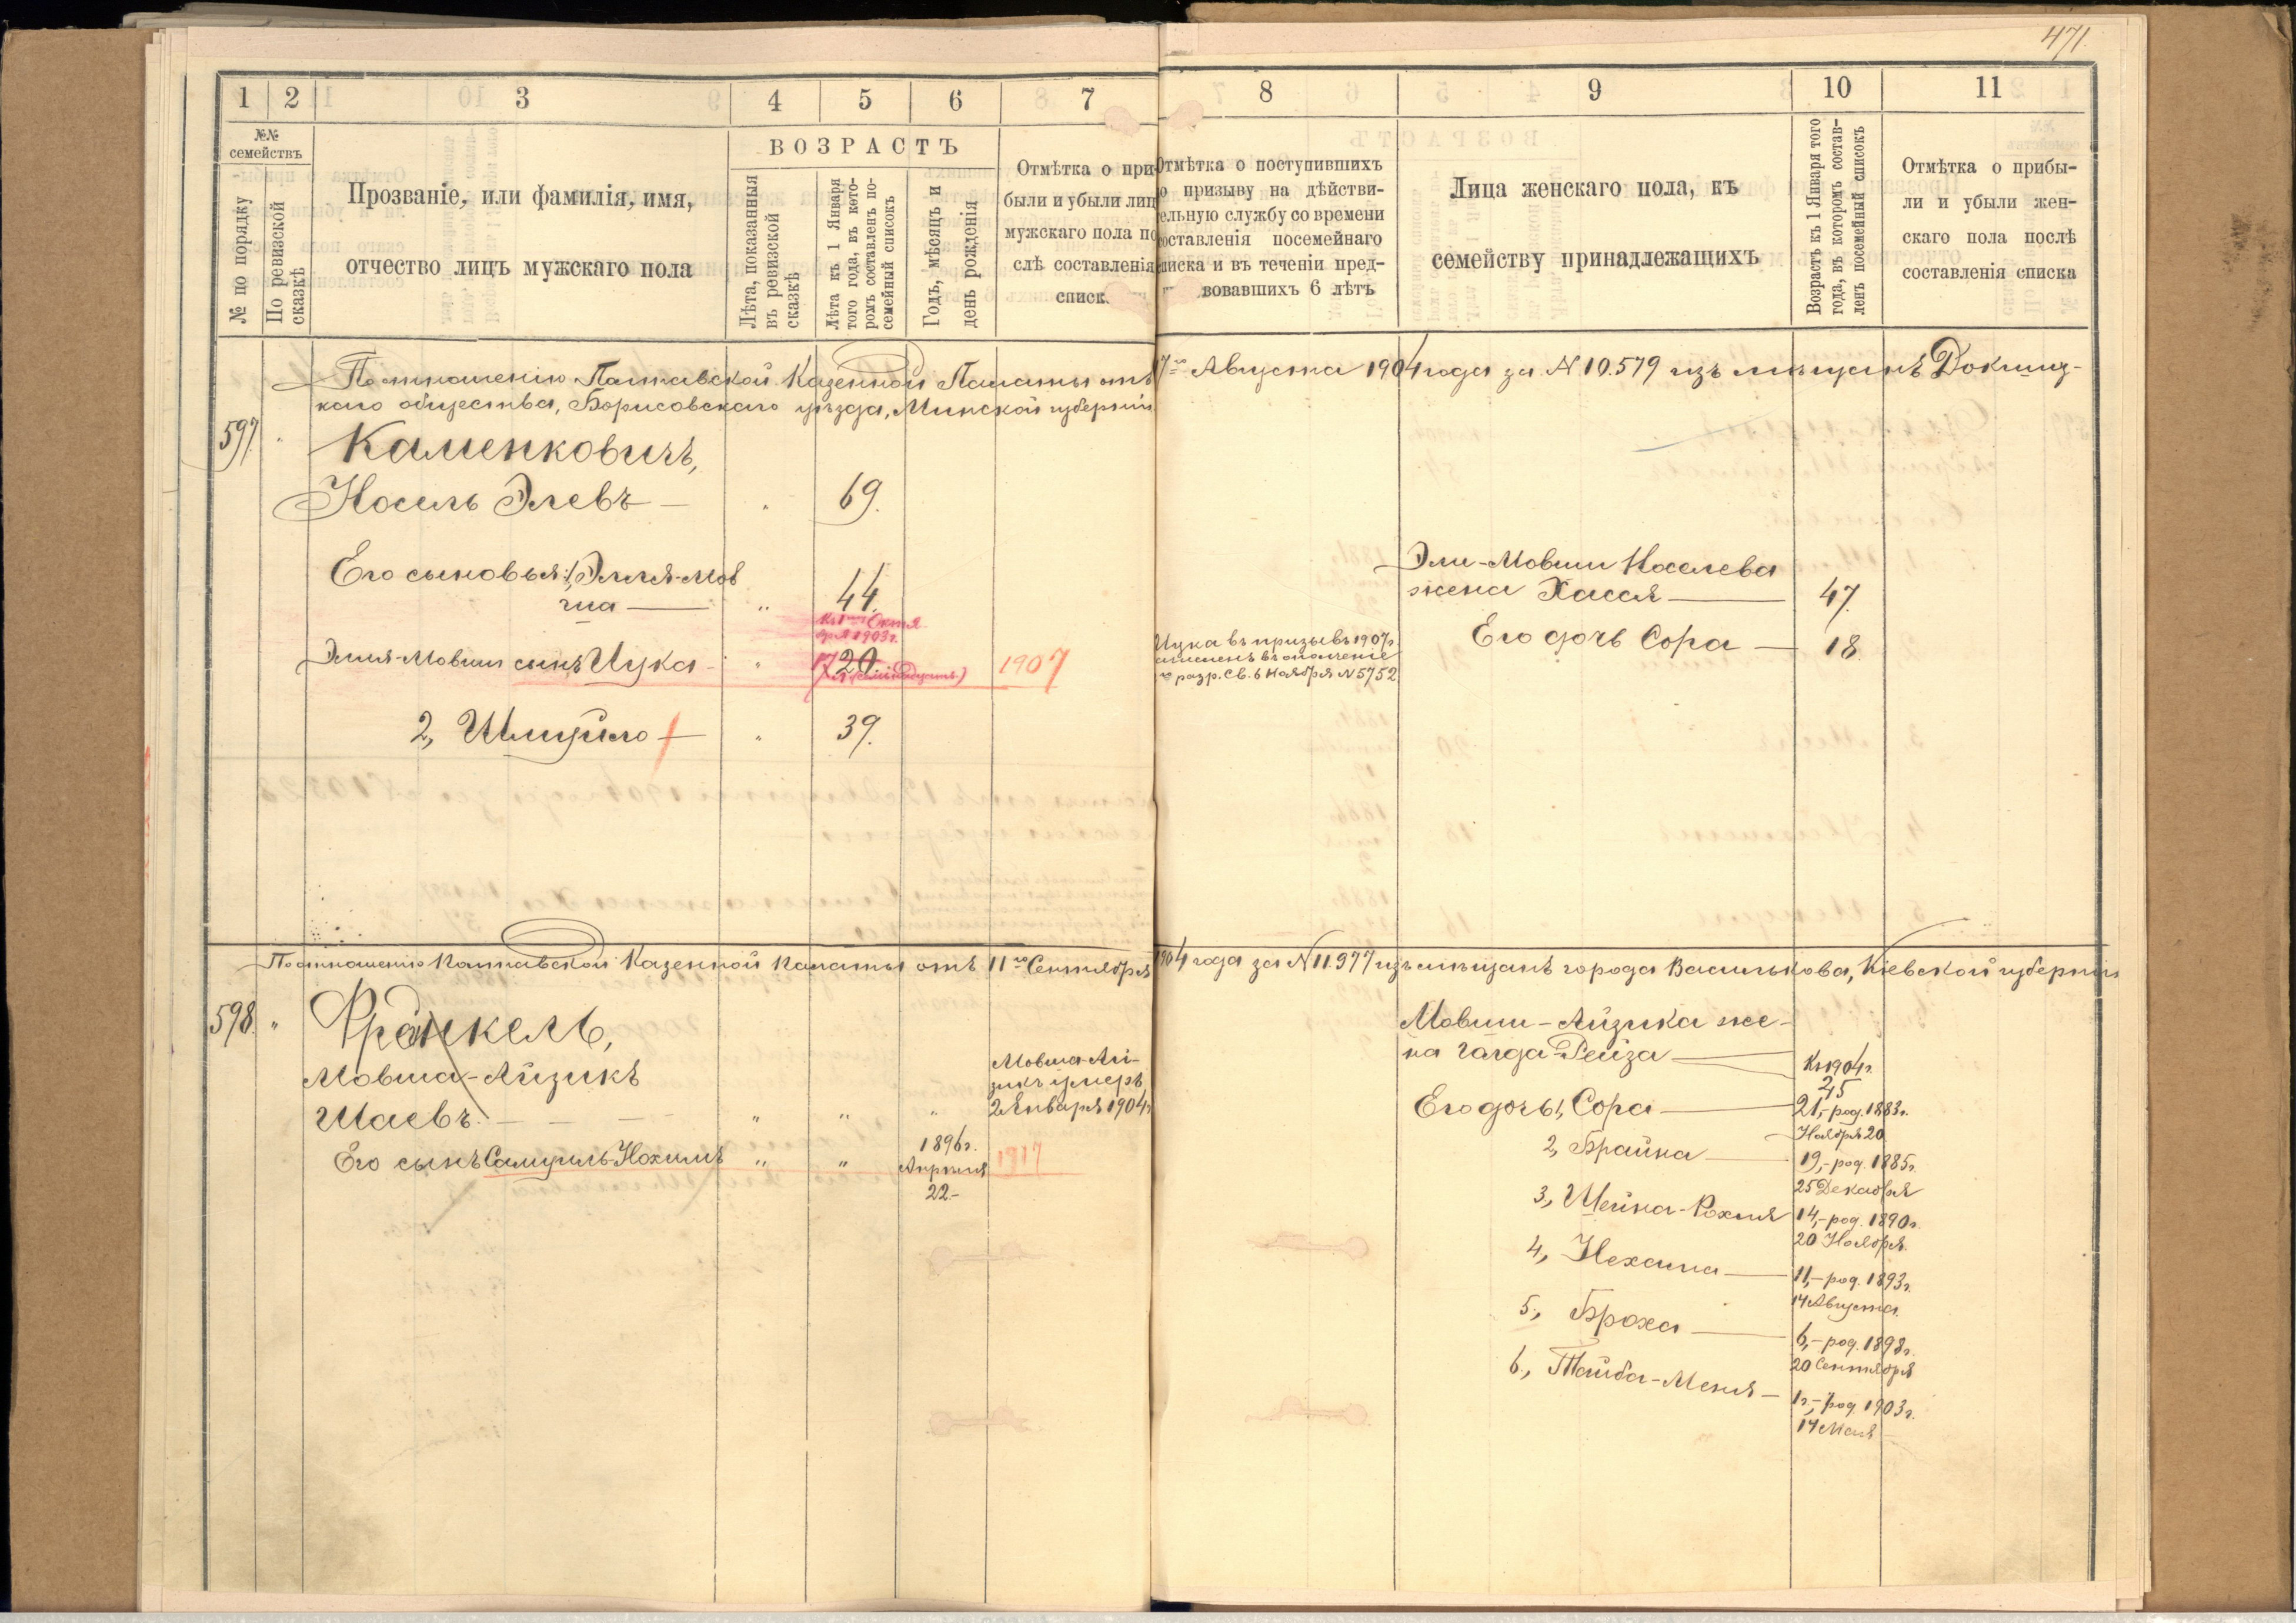 471.
1 2 3 4 5 6 7 8 9 10 11
№№ семействъ
№ по порядку
По ревизской сказкѣ
Прозваніе, или фамилія, имя,
отчество лицъ мужскаго пола
ВОЗРАСТЪ
Лѣта, показанныя
въ ревизской
сказкѣ
Лѣта къ 1 Января
того года, въ кото-
ромъ составленъ по-
семейный списокъ
Годъ, мѣсяцъ и
день рожденія
Отмѣтка о при-
были и убыли лицъ
мужскаго пола по
слѣ составленія
списк
Отмѣтка о поступившихъ
о призыву на дѣйстви-
ельную службу со времени
оставленія посемейнаго
писка и въ теченіи пред-
вовавшихъ 6 лѣтъ
Лица женскаго пола, къ
семейству принадлежащихъ
Возрастъ къ 1 Января того
года, въ которомъ состав-
ленъ посемейный списокъ
Отмѣтка о прибы-
ли и убыли жен-
скаго пола послѣ
составленія списка
По отношенію Полтавской Казенной Палаты отъ 17го Августа 1904 года за N 10.579 изъ мѣщанъ Докшиц-
каго общества, Борисовскаго уѣзда, Минской губерніи
597. " Каменковичъ,
Носель Элевъ — " 69.
Его сыновья: 1, Элья-Мов
ша — " 44.
Къ 1му Октя
бря 1903 г.
Элья-Мовши сынъ Ицка - " 20
17 л (семнадцать)
1907
Ицка въ призывъ 1907 г.
зачисленъ въ ополченіе
го разр. Св. 6 Ноября N 5752
2, Шмуйло — " 39.
Эли-Мовши Носелева
жена Хася — 47.
Его дочь Сора — 18.
По отношенію Полтавской Казенной Палаты отъ 11го Сентября 1904 года за N 11.977 изъ мѣщанъ города Василькова, Кіевской губерніи
598. " Франкель,
Мовша-Айзикъ
Шаевъ. — — — " " "
Мовша-Ай-
зикъ умеръ
2 Января 1904 г.
Его сынъ Самуиль-Нохимъ " "
1896 г.
Апрѣля
22-
1917
Мовши-Айзика же-
на Голда-Рейза —
Къ 1904 г.
45
Его дочь 1, Сора — 21,- род. 1883 г.
Ноября 20
2, Брайна — 19,- род. 1885 г.
25 Декабря
3, Шейна-Рохля 14,- род. 1890 г.
20 Ноября.
4, Нехама — 11,- род. 1893 г.
14 Августа.
5, Броха — 6,- род. 1898 г.
20 Сентября
6, Тайба-Меня — 1 г.,- род. 1903 г.
14 Мая